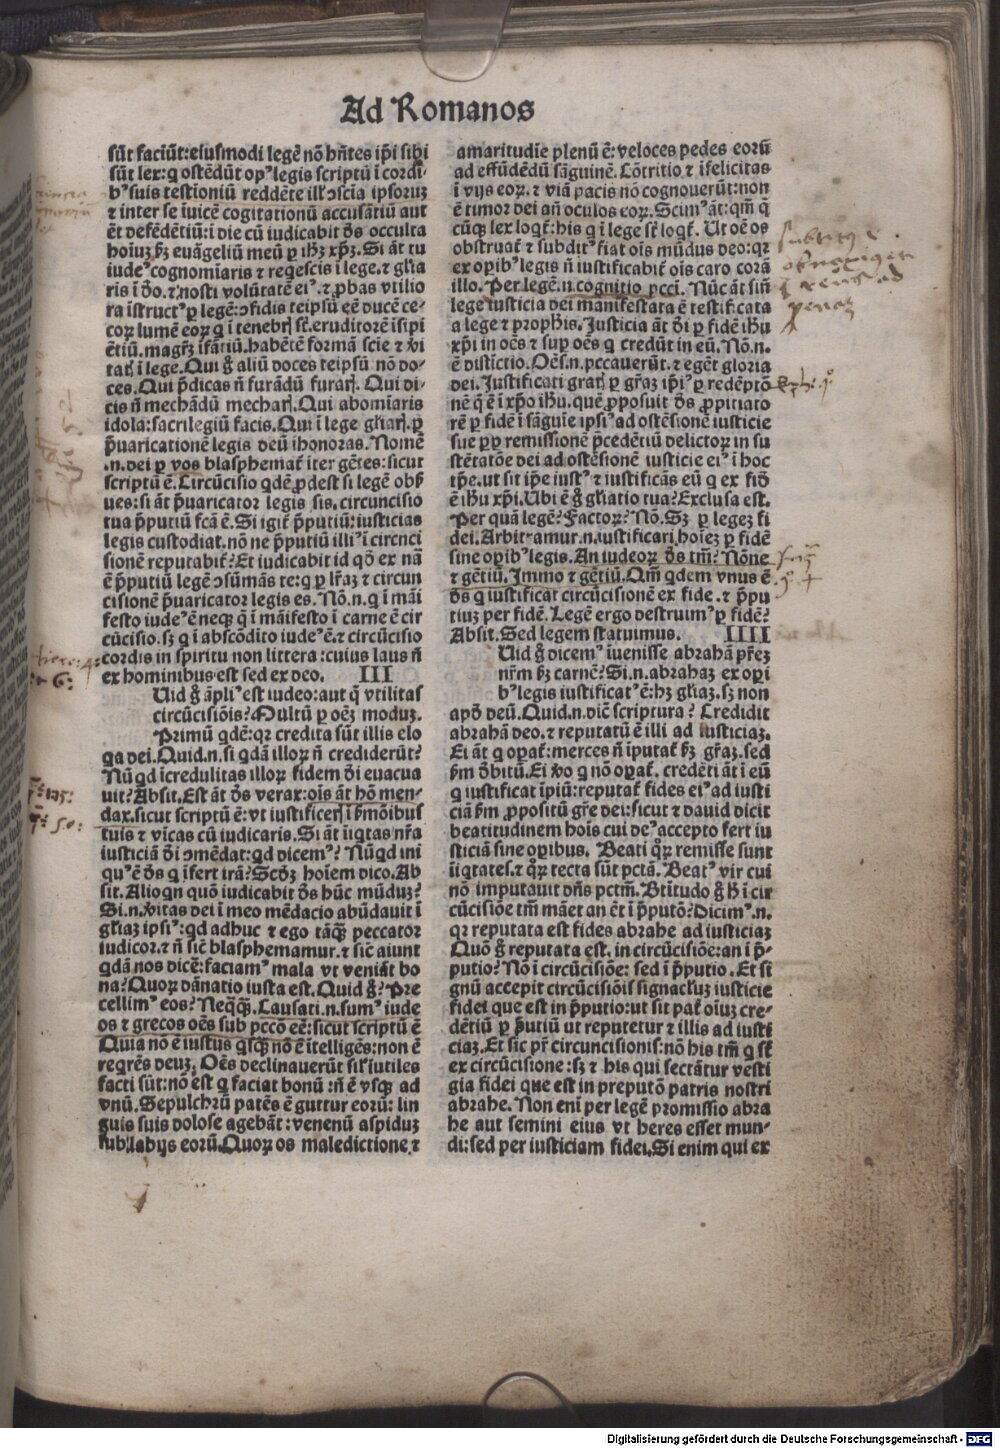 Ad Romanos
sũt faciũt:eiusmodi legẽ nõ hñtes ip̃i sibi
sũt lex:q ostẽdũt opꝰ legis scriptũ ĩ cordi-
bꝰ suis testioniũ reddẽte illꝭ ↄsciã ipsoruꝫ
⁊ inter se ĩuicẽ cogitationũ accusãtiũ aut
ẽt defẽdẽtiũ:ĩ die cũ iudicabit d̃s occulta
hoĩuꝫ ẜꝫ euãgeliũ meũ ꝑ ihꝫ xp̃ꝫ.Si ãt tu
iudeꝰ cognomĩaris ⁊ reqescis ĩ lege.⁊ gl̃ia
ris ĩ d̃o.⁊ nosti volũtatẽ eiꝰ.⁊ ꝓbas vtilio
ra ĩstructꝰ ꝑ legẽ:ↄfidis teipsũ eẽ ducẽ ce-
coꝝ lumẽ eoꝝ q ĩ tenebrꝭ sẽ.eruditorẽ ĩsipi
ẽtiũ.magr̃ꝫ ĩfãtiũ.habẽtẽ formã scie ⁊ ṽi
tatꝭ ĩ lege.Qui g̃ aliũ doces teipsũ nõ do-
ces.Qui p̃dicas ñ furãdũ furarꝭ.Qui di-
cis ñ mechãdũ mecharꝭ.Qui abomĩaris
idola:sacrilegiũ facis.Qui ĩ lege gl̃iarꝭ.ꝑ
p̃uaricationẽ legis deũ ĩhonoras.Nomẽ
.n.dei ꝑ vos blasphemat̃ ĩter gẽtes:sicut
scriptũ ẽ.Circũcisio qdẽ ꝓdest si legẽ obẜ
ues:si ãt p̃uaricator legis sis.circuncisio
tua p̃putiũ fcã ẽ.Si igit̃ p̃putiũ:iusticias
legis custodiat.nõ ne p̃putiũ illiꝰ ĩ circnci
sionẽ reputabit̃?Et iudicabit id qõ ex nã
ẽ p̃putiũ legẽ ↄsũmãs te:q ꝑ lr̃aꝫ ⁊ circun
cisionẽ p̃uaricator legis es.Nõ.n.q ĩ mãi
festo iudeꝰ ẽ neqꝫ q ĩ mãifesto ĩ carne ẽ cir
cũcisio.sꝫ q ĩ abscõdito iudeꝰ ẽ.⁊ circũcisio
cordis in spiritu non littera:cuius laus ñ
ex hominibus est sed ex deo. III
Uid g̃ ãpliꝰ est iudeo:aut q̃ vtilitas
circũcisiõis?Multũ ꝑ oẽꝫ moduꝫ.
Primũ qdẽ:qꝛ credita sũt illis elo
qa dei.Quid.n.si qdã illoꝝ ñ crediderũt?
Nũqd ĩcredulitas illoꝝ fidem d̃i euacua
uit?Absit.Est ãt d̃s verax:oĩs ãt hõ men-
dax.sicut scriptũ ẽ:vt iustificerꝭ ĩ ẜmõibus
tuis ⁊ vĩcas cũ iudicaris.Si ãt ĩiqtas nr̃a
iusticiã d̃i ↄmẽdat:qd dicemꝰ? Nũqd ini
quꝰ ẽ d̃s q ĩfert irã?Scd̃ꝫ hoĩem dico.Ab
sit.Alioqn quõ iudicabit d̃s hũc mũduꝫ?
Si.n.ṽitas dei ĩ meo mẽdacio abũdauit ĩ
gl̃iaꝫ ipsiꝰ:qd adhuc ⁊ ego tãq̃ꝫ peccator
iudicor.⁊ ñ sic̃ blasphemamur.⁊ sic̃ aiunt
qdã nos dicẽ:faciamꝰ mala vt veniãt bo
na?Quoꝝ dãnatio iusta est.Quid g̃? Pre
cellimꝰ eos? Neq̃q̃ꝫ.Causati.n.sumꝰ iude
os ⁊ grecos oẽs sub pccõ eẽ:sicut scriptũ ẽ
Quia nõ ẽ iustus qsq̃ꝫ nõ ẽ ĩtelligẽs:non ẽ
reqrẽs deuꝫ. Oẽs declinauerũt sil̃ iutiles
facti sũt:nõ est q faciat bonũ:ñ ẽ vsqꝫ ad
vnũ.Sepulchrũ patẽs ẽ guttur eorũ: lin
guis suis dolose agebãt:venenũ aspiduꝫ
sub labijs eorũ.Quoꝝ os maledictione ⁊
amaritudĩe plenũ ẽ: veloces pedes eorũ
ad effũdẽdũ sãguinẽ. Cõtritio ⁊ ĩfelicitas
ĩ vijs eoꝝ.⁊ viã pacis nõ cognouerũt:non
ẽ timor dei añ oculos eoꝝ.Scimꝰ ãt:qm̃ q̃
cũqꝫ lex loqt̃:his q ĩ lege st̃ loqt̃. Ut oẽ os
obstruat̃ ⁊ subditꝰ fiat oĩs mũdus deo:qꝛ
ex opibꝰ legis ñ iustificabit̃ oĩs caro corã
illo. Per legẽ.n.cognitio pccĩ. Nũc ãt siñ
lege iusticia dei manifestata ẽ testificata
a lege ⁊ proph̃is.Justicia ãt d̃i ꝑ fidẽ ihũ
xp̃i in oẽs ⁊ suꝑ oẽs q credũt in eũ. Nõ.n.
ẽ distĩctio.Oẽs.n.pccauerũt.⁊ egẽt gloria
dei.Justificati gratꝭ ꝑ gr̃aꝫ ip̃iꝰ ꝑ redẽptõ
nẽ q̃ ẽ ĩ xp̃o ihũ.quẽ ꝓposuit d̃s ꝓpitiato
rẽ ꝑ fidẽ ĩ sãguĩe ipsiꝰ ad ostẽsionẽ iusticie
sue ꝑꝑ remissionẽ p̃cedẽtiũ delictoꝝ in su
stẽtatõe dei ad ostẽsionẽ iusticie eiꝰ ĩ hoc
tp̃e.ut sit ip̃e iustꝰ ⁊ iustificãs eũ q ex fid̃
ẽ ihũ xp̃i.Ubi ẽ g̃ gl̃iatio tua?Exclusa est.
Per quã legẽ? Factoꝝ? Nõ.Sꝫ ꝑ legeꝫ fi
dei.Arbitramur.n.iustificari hoĩeꝫ ꝑ fidẽ
sine opibꝰ legis.An iudeoꝝ d̃s tm̃? Nõne
⁊ gẽtiũ.Immo ⁊ gẽtiũ.Qm̃ qdem vnus ẽ
d̃s q iustificat circũcisionẽ ex fide.⁊ p̃pu
tiuꝫ per fidẽ. Legẽ ergo destruimꝰ ꝑ fidẽ?
Absit.Sed legem statuimus. IIII
Uid g̃ dicemꝰ ĩuenisse abrahã pr̃eꝫ
nr̃m ẜꝫ carnẽ?Si.n.abrahaꝫ ex opi
bꝰ legis iustificatꝰ ẽ:hꝫ gl̃iaꝫ.sꝫ non
apd̃ deũ.Quid.n.dic̃ scriptura? Credidit
abrahã deo.⁊ reputatũ ẽ illi ad iusticiaꝫ.
Ei ãt q opat̃:merces ñ ĩputat̃ ẜꝫ gr̃aꝫ.sed
ẜm d̃bitũ.Ei ṽo q nõ opat̃. credẽti ãt ĩ eũ
q iustificat ĩpiũ:reputat̃ fides eiꝰ ad iusti
ciã ẜm ꝓpositũ gr̃e dei:sicut ⁊ dauid dicit
beatitudinem hoĩs cui deꝰ accepto fert iu
sticiã sine opibus. Beati q̃ꝝ remisse sunt
ĩiqtates.⁊ q̃ꝝ tecta sũt pctã.Beatꝰ vir cui
nõ imputauit dñs pctm̃.Btĩtudo g̃ h̃ ĩ cir
cũcisiõe tm̃ mãet an ẽt ĩ p̃putõ?Dicimꝰ.n.
qꝛ reputata est fides abrahe ad iusticiaꝫ
Quõ g̃ reputata est. in circũcisiõe:an ĩ p̃-
putio? Nõ ĩ circũcisiõe: sed ĩ p̃putio.Et si
gnũ accepit circũcisiõis signacl̃uꝫ iusticie
fidei que est in p̃putio:ut sit pat̃ oĩuꝫ cre-
dẽtiũ ꝑ p̃putiũ ut reputetur ⁊ illis ad iusti
ciaꝫ.Et sic pr̃ circuncisionis:nõ his tm̃ q st̃
ex circũcisione:sꝫ ⁊ his qui sectãtur vesti
gia fidei que est in preputõ patris nostri
abrahe. Non eni per legẽ promissio abra
he aut semini eius vt heres esset mun-
di:sed per iusticiam fidei.Si enim qui ex
Digitalisierung gefördert durch die Deutsche Forschungsgemeinschaft - DFG